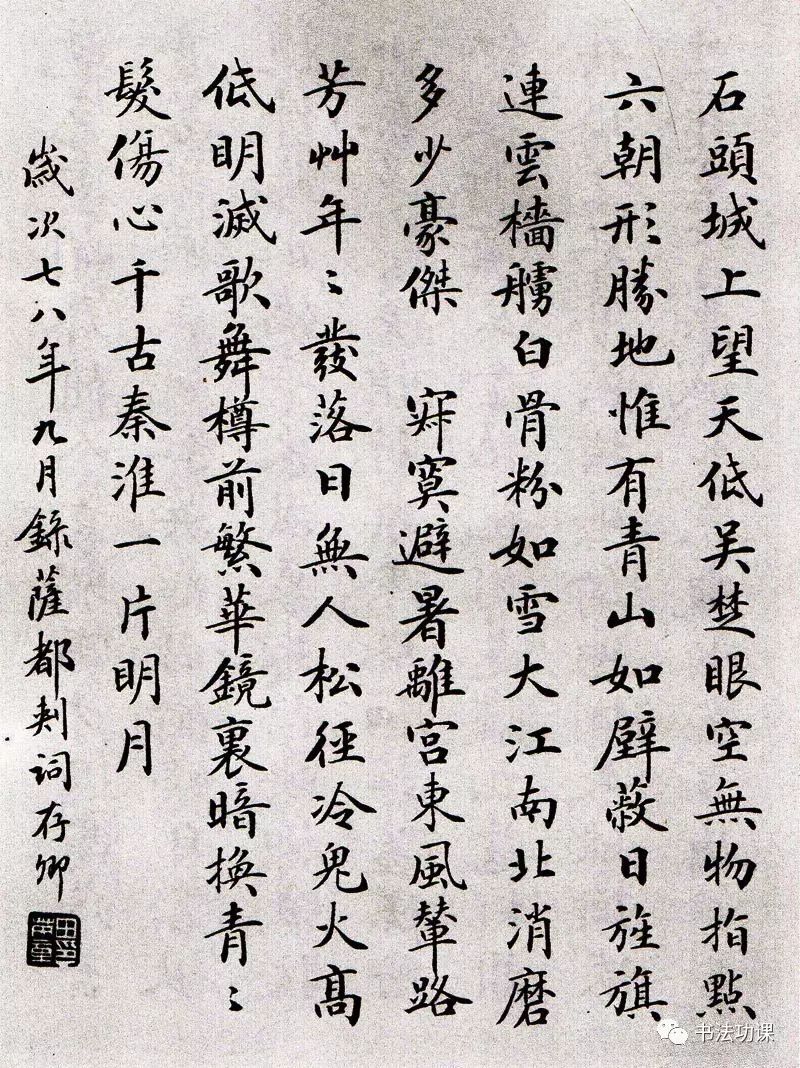 石頭城上望天低吴楚眼空無物指點
六朝形勝地惟有青山如壁蔽日旌旗
連雲檣艣白骨粉如雪大江南北消磨
多少豪傑 寂寞避暑離宫東風輦路
芳艸年〻發落日無人松徑冷鬼火高
低明滅歌舞樽前繁華鏡裏暗換青〻
髮傷心千古秦淮一片明月
歲次七八年九月錄薩都剌詞存卿
书法功课